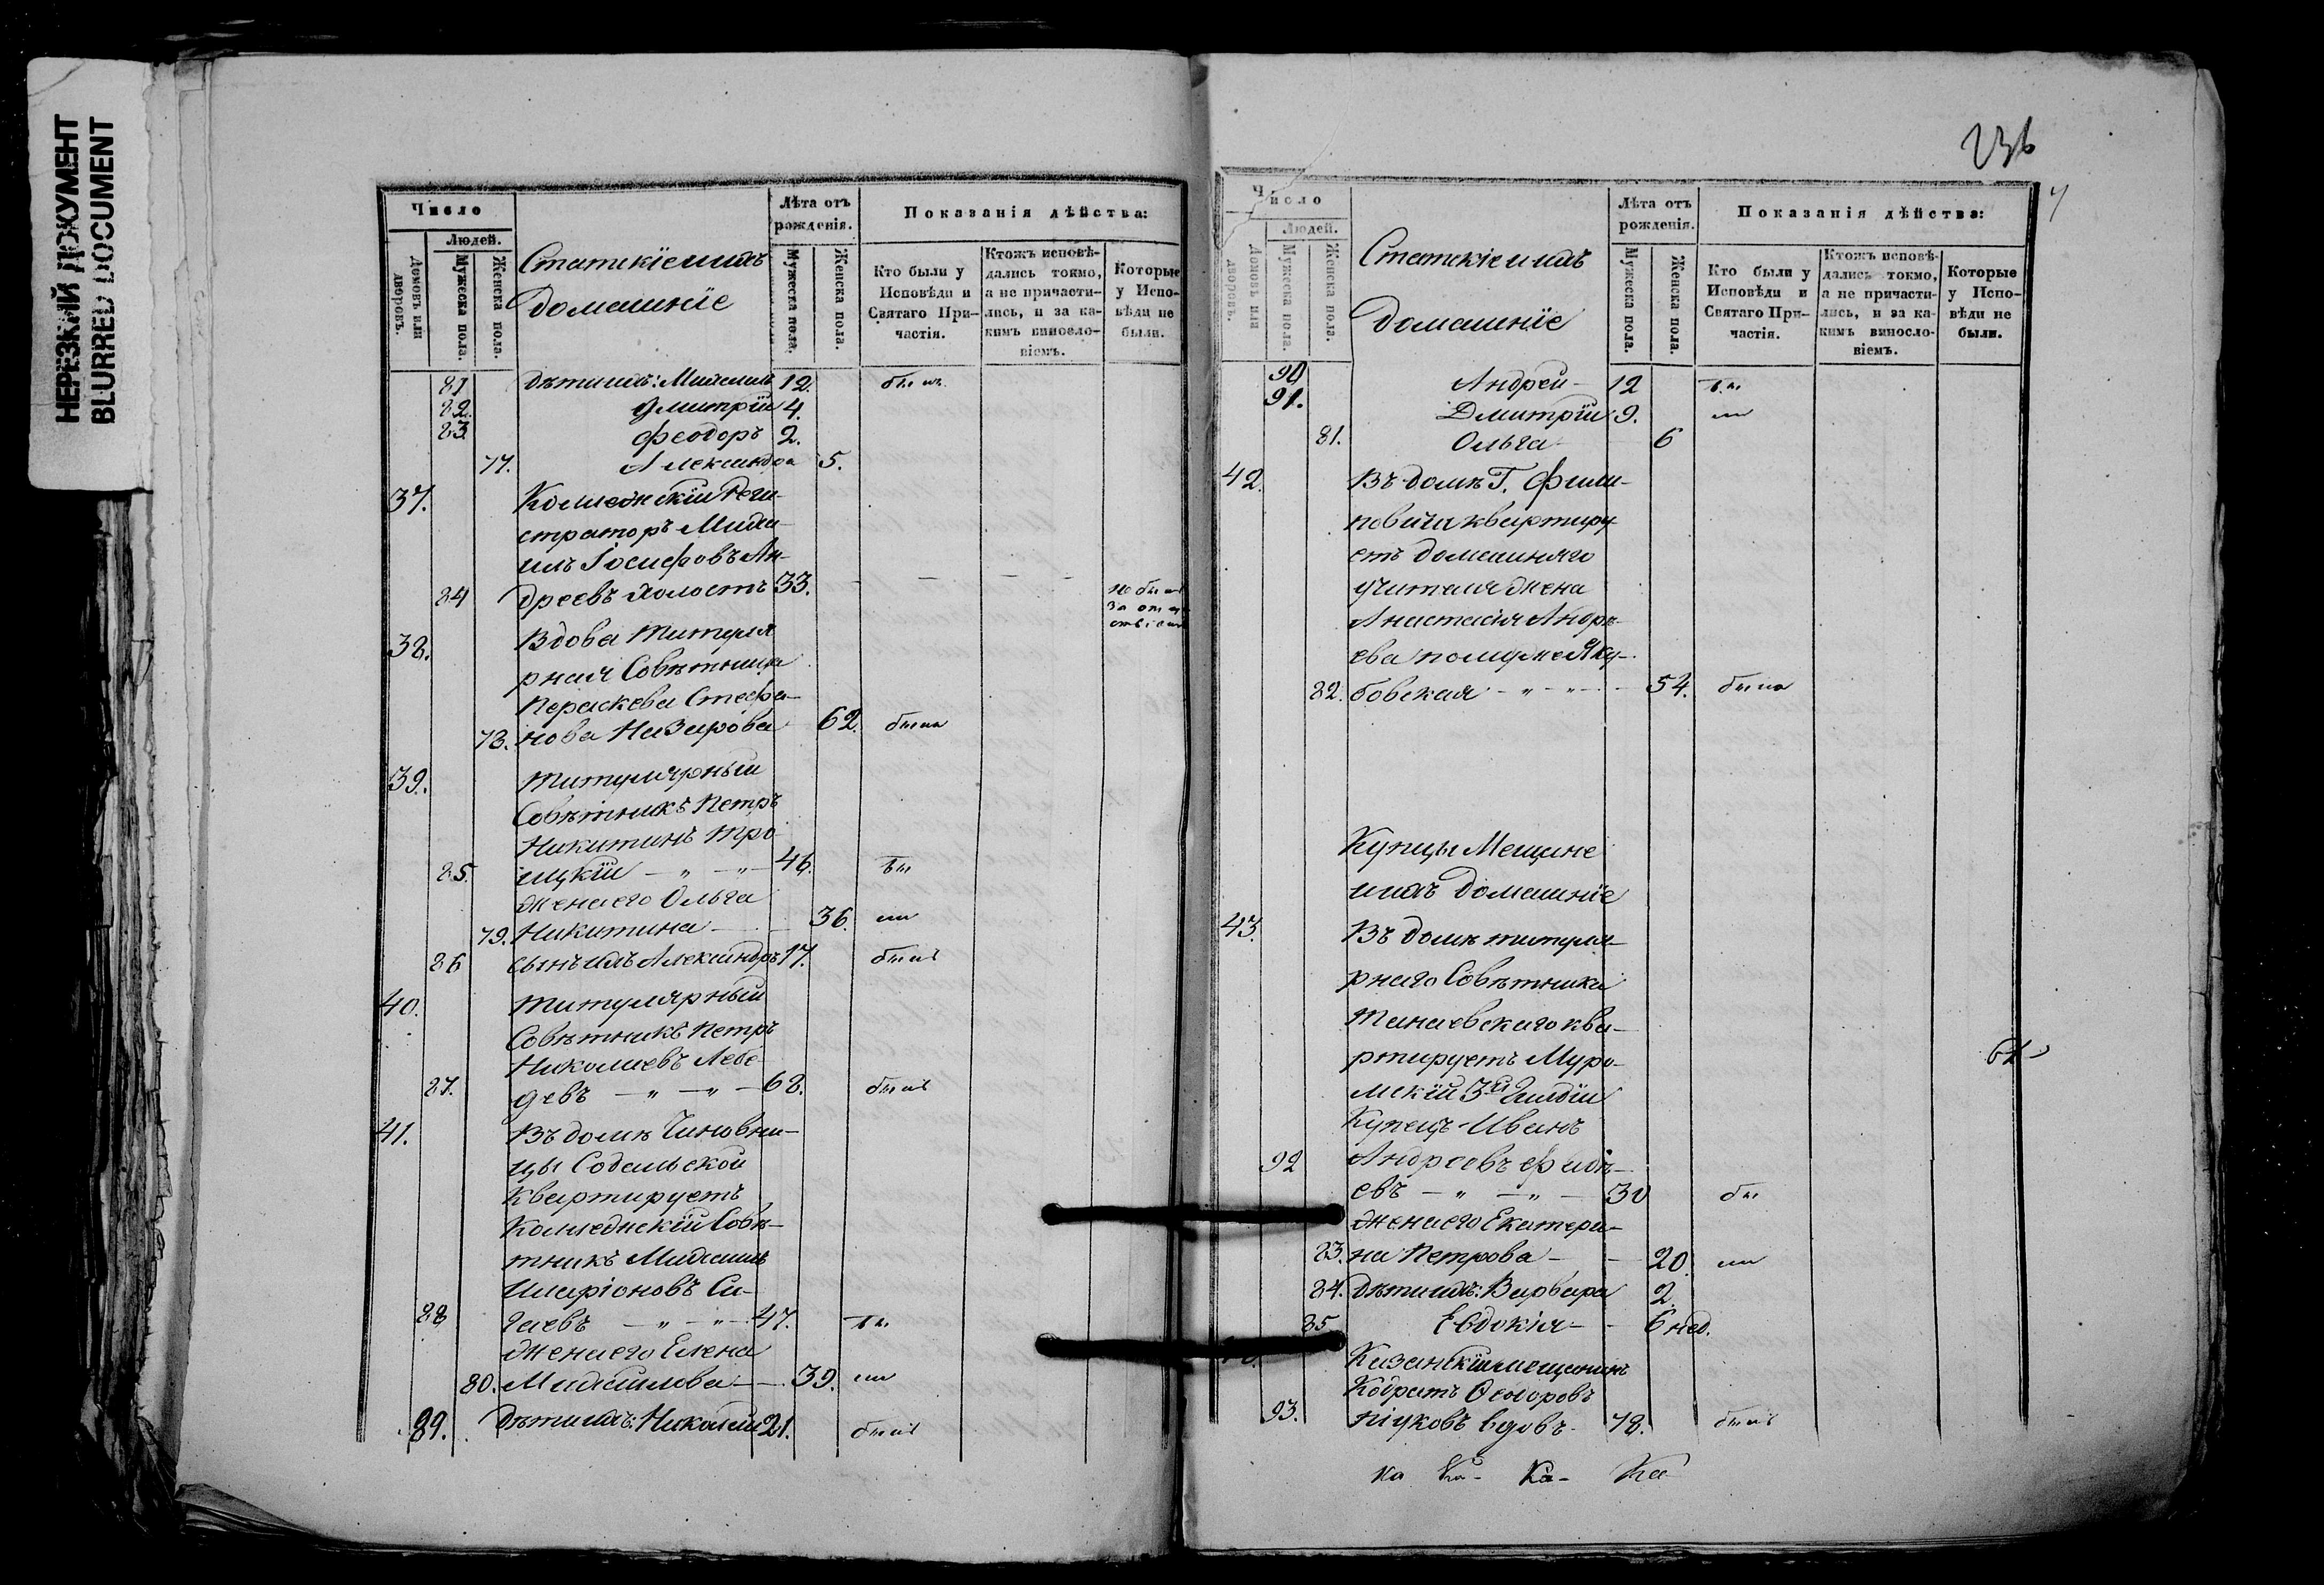 НЕРЕЗКИЙ ДОКУМЕНТ
BLURRED DOCUMENT
Число
Людей.
Домовъ или дворовъ.
Мужеска пола.
Женска пола.
Статскіе и ихъ
домашніе
Лѣта отъ рожденія.
Мужеска пола.
Женска пола.
Показанія дѣйства:
Кто были у Исповѣди и Святаго Причастія.
Ктожъ исповѣдались токмо, а не причастились, и за какимъ винословіемъ.
Которые у Исповѣди не были.
81 Дѣти ихъ: Михаилъ 12. былъ
82. Дмитрій 4.
83 Феодоръ 2.
77. Александра 5.
37. Коллежскій Реги-
страторъ Миха-
илъ Іосифовъ Ан-
84 дреевъ холостъ 33. не былъ
за отлу
38. Вдова Титуля
рная Совѣтница
Параскева Стефа-
78. нова Назарова 62. была
39. Титулярный
Совѣтникъ Петръ
Никитинъ Тро
85. ицкій — " — " — 46. бы
жена его Ольга
79. Никитина — 36. ли
86 сынъ ихъ Александръ 17. былъ
40. Титулярный
Совѣтникъ Петръ
Николаевъ Лебе
87. девъ — " — " — 68. былъ
41. Въ домѣ Чиновни-
цы Содальской
квартируетъ
Коллежскій Совѣ-
тникъ Михаилъ
Иларіоновъ Си-
88 гаевъ — " — " — 47. бы
жена его Елена
80. Михайлова — 39. ли
89. Дѣти ихъ: Николай 21. былъ
236
7
Число
Людей.
Домовъ или дворовъ.
Мужеска пола.
Женска пола.
Статскіе и ихъ
домашніе
Лѣта отъ рожденія.
Мужеска пола.
Женска пола.
Показанія дѣйства:
Кто были у Исповѣди и Святаго Причастія.
Ктожъ исповѣдались токмо, а не причастились, и за какимъ винословіемъ.
Которые у Исповѣди не были.
90 Андрей — 12 бы
91. Дмитрій 9. ли
81. Ольга 6
42. Въ домѣ Г. Фили-
повича квартиру-
етъ домашняго
учителя жена
Анастасія Андре-
ева по мужѣ Яку-
82. бовская — " — " — 54. была
Купцы Мещане
и ихъ домашніе
43. Въ домѣ титуля-
рнаго Совѣтника
Танаевскаго ква-
ртируетъ Муро-
мскій 3й Гильдіи
Купецъ Иванъ
92 Андреевъ Фадѣ-
евъ — " — " — 30 бы
жена его Екатери-
83. на Петрова — 20. ли
84. Дѣти ихъ: Варвара 2.
85 Евдокія — 6 нед.
Казанскій мещанинъ
Кодратъ Ѳеодоровъ
93. вдовъ. 78. былъ
ка Ка- Ка- Ка